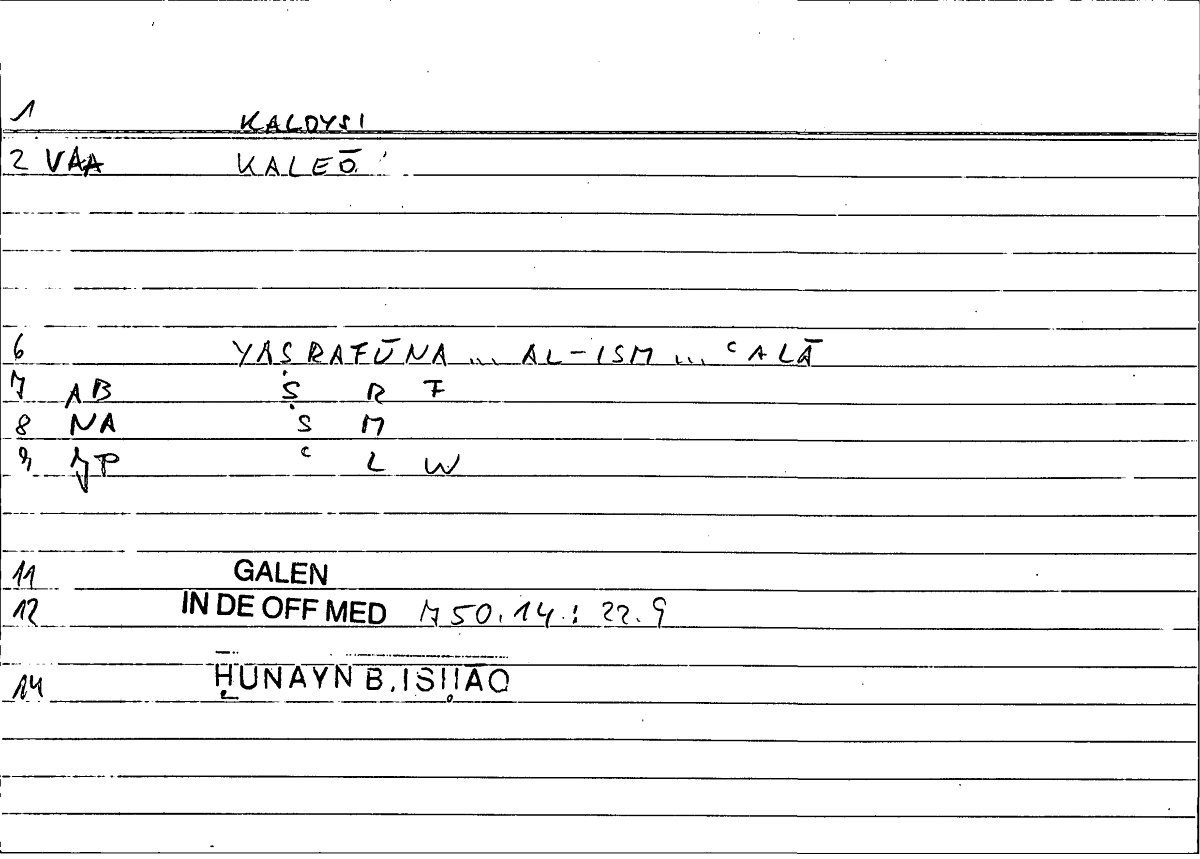 1 KALOYSI
2 VAA KALEŌ
6 YAṢRAFŪNA ... AL-ISM ... ʿALĀ
7 AB Ṣ R F
8 NA S M
9 JP ʿ L W
11 GALEN
12 IN DE OFF MED 750.14 : 22.9
14 ḤUNAYN B. ISḤĀQ